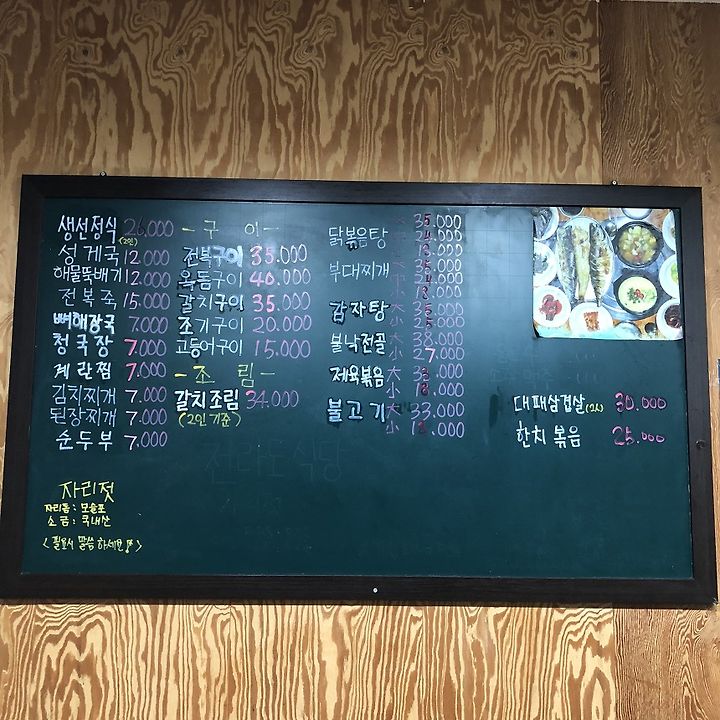 생선정식 26,000
(2인)
성게국 12,000
해물뚝배기 12,000
전복죽 15,000
뼈해장국 7,000
청국장 7,000
계란찜 7,000
김치찌개 7,000
된장찌개 7,000
순두부 7,000
자리젓
자리돔:
소금: 국내산
<필요시 말씀하세요>
-구이-
전복구이 35.000
옥돔구이 40.000
갈치구이 35.000
조기구이 20.000
고등어구이 15.000
-조림-
갈치조림 34.000
(2인기준)
닭볶음탕 大 35.000
부대찌개
감자탕 大
小
불낙전골 大 38.000
小 27.000
제육볶음 大
小
불고기 大 33.000
小
대패삼겹살 30.000
한치볶음 25.000